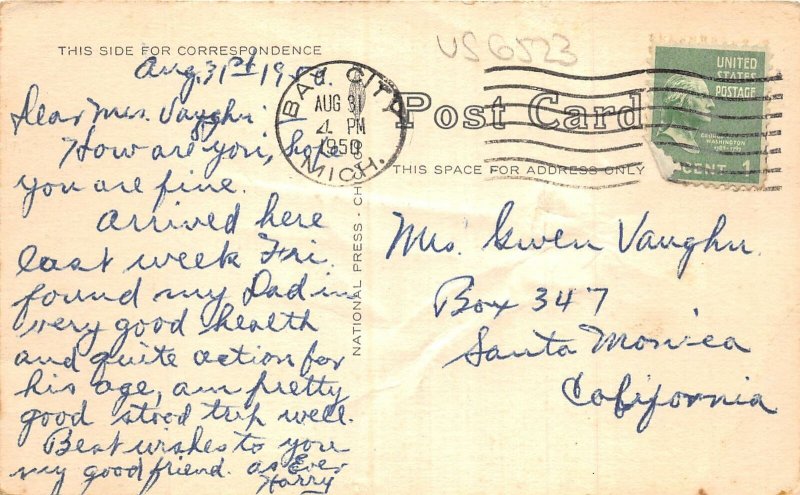 THIS SIDE FOR CORRESPONDENCE
Aug. 31st 1950.
Dear Mrs. Vaughn:
How are you, hope
you are fine.
Arrived here
last week Fri.
found my Dad in
very good health
and quite action for
his age, am pretty
good stood trip well.
Best wishes to you
my good friend. as Ever
Harry
BAY CITY
AUG 31
4 PM
1950
MICH.
NATIONAL PRESS - CHICAGO
US6523
Post Card
THIS SPACE FOR ADDRESS ONLY
UNITED
STATES
POSTAGE
GEORGE
WASHINGTON
CENT 1
Mrs. Gwen Vaughn.
Box 347
Santa Monica
California